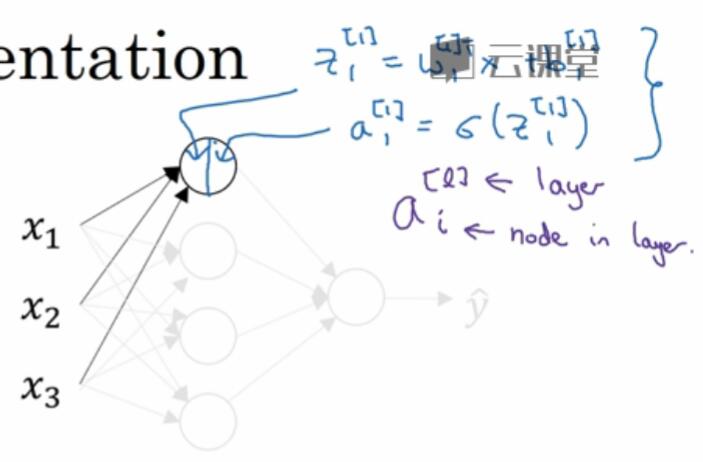 entation
z₁^[1] = w₁^[1]ᵀ x + b₁^[1]
云课堂
a₁^[1] = σ(z₁^[1])
a_i^[l] ← layer
← node in layer.
x₁
x₂
x₃
ŷ